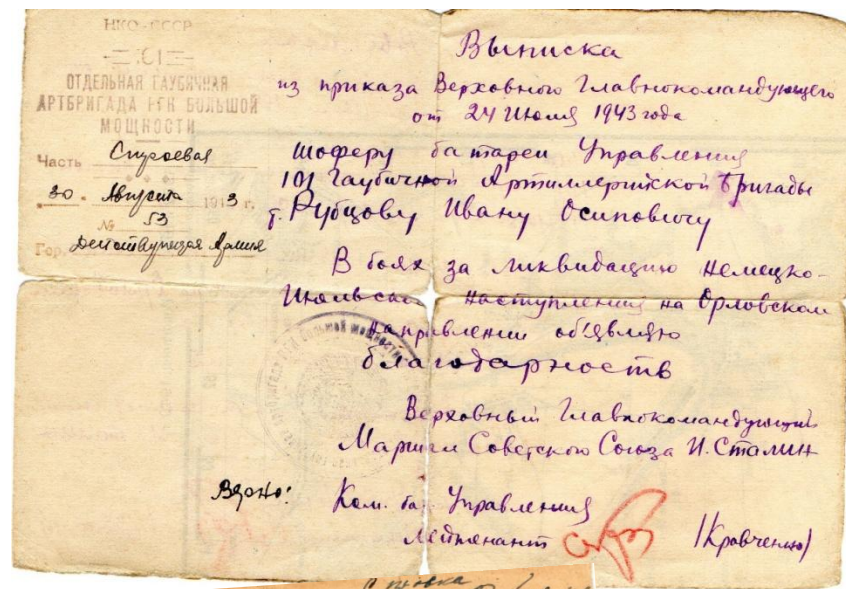 НКО-СССР
101
ОТДЕЛЬНАЯ ГАУБИЧНАЯ
АРТБРИГАДА РГК БОЛЬШОЙ
МОЩНОСТИ
Часть Строевая
30 Августа 1943 г.
№ 53
Гор. Действующая Армия
Выписка
из приказа Верховного Главнокомандующего
от 24 Июля 1943 года
шоферу батареи Управления
101 Гаубичной Артиллерийской Бригады
т. Рубцову Ивану Осиповичу
В боях за ликвидацию немецко-
Июльск наступления на Орловском
направлении об'являю
благодарность
Верховный Главнокомандующий
Маршал Советского Союза И. Сталин
Верно: Ком. бат Управления
лейтенант /Кравченко/